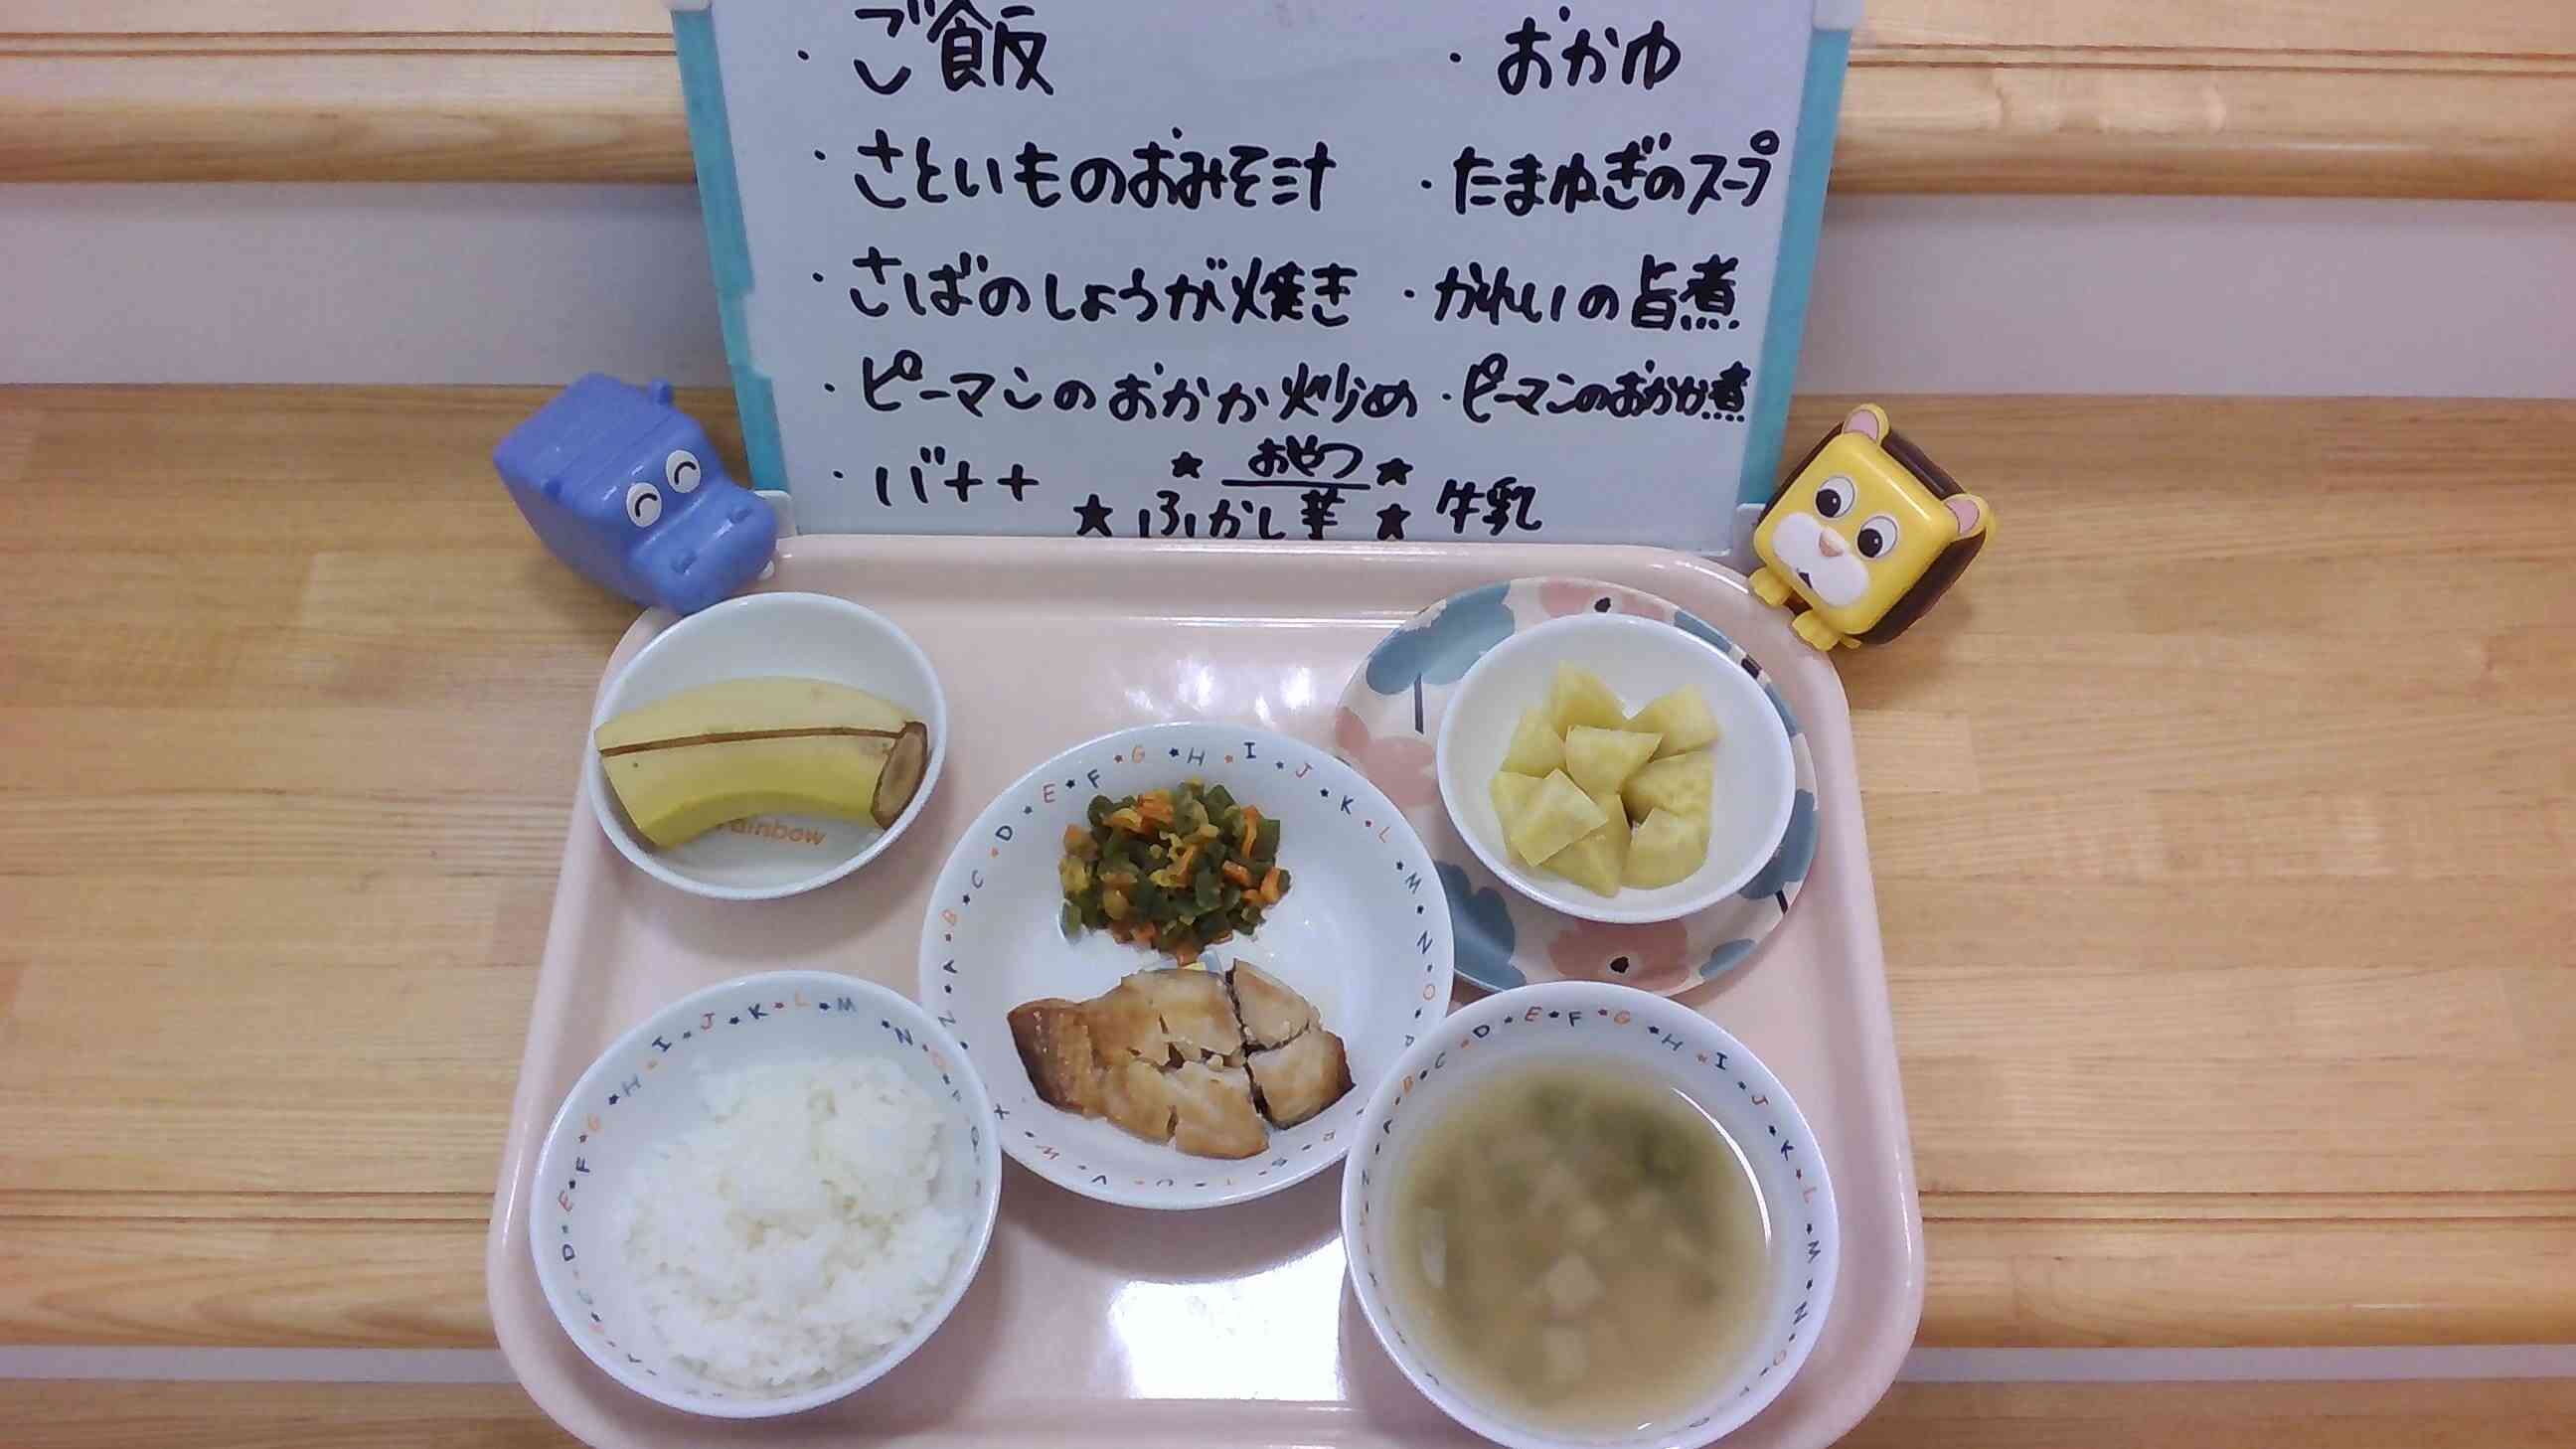 ・ご飯
・さといものおみそ汁
・さばのしょうが焼き
・ピーマンのおかか炒め
・バナナ
・おかゆ
・たまねぎのスープ
・かれいの旨煮
・ピーマンのおかか煮
★ おやつ ★
★ ふかし芋 ★ 牛乳
rainbow
E F G H I J K L M N O
A B C D
D E F G H I J K L M N O
A B C D E F G H I J K L M N O